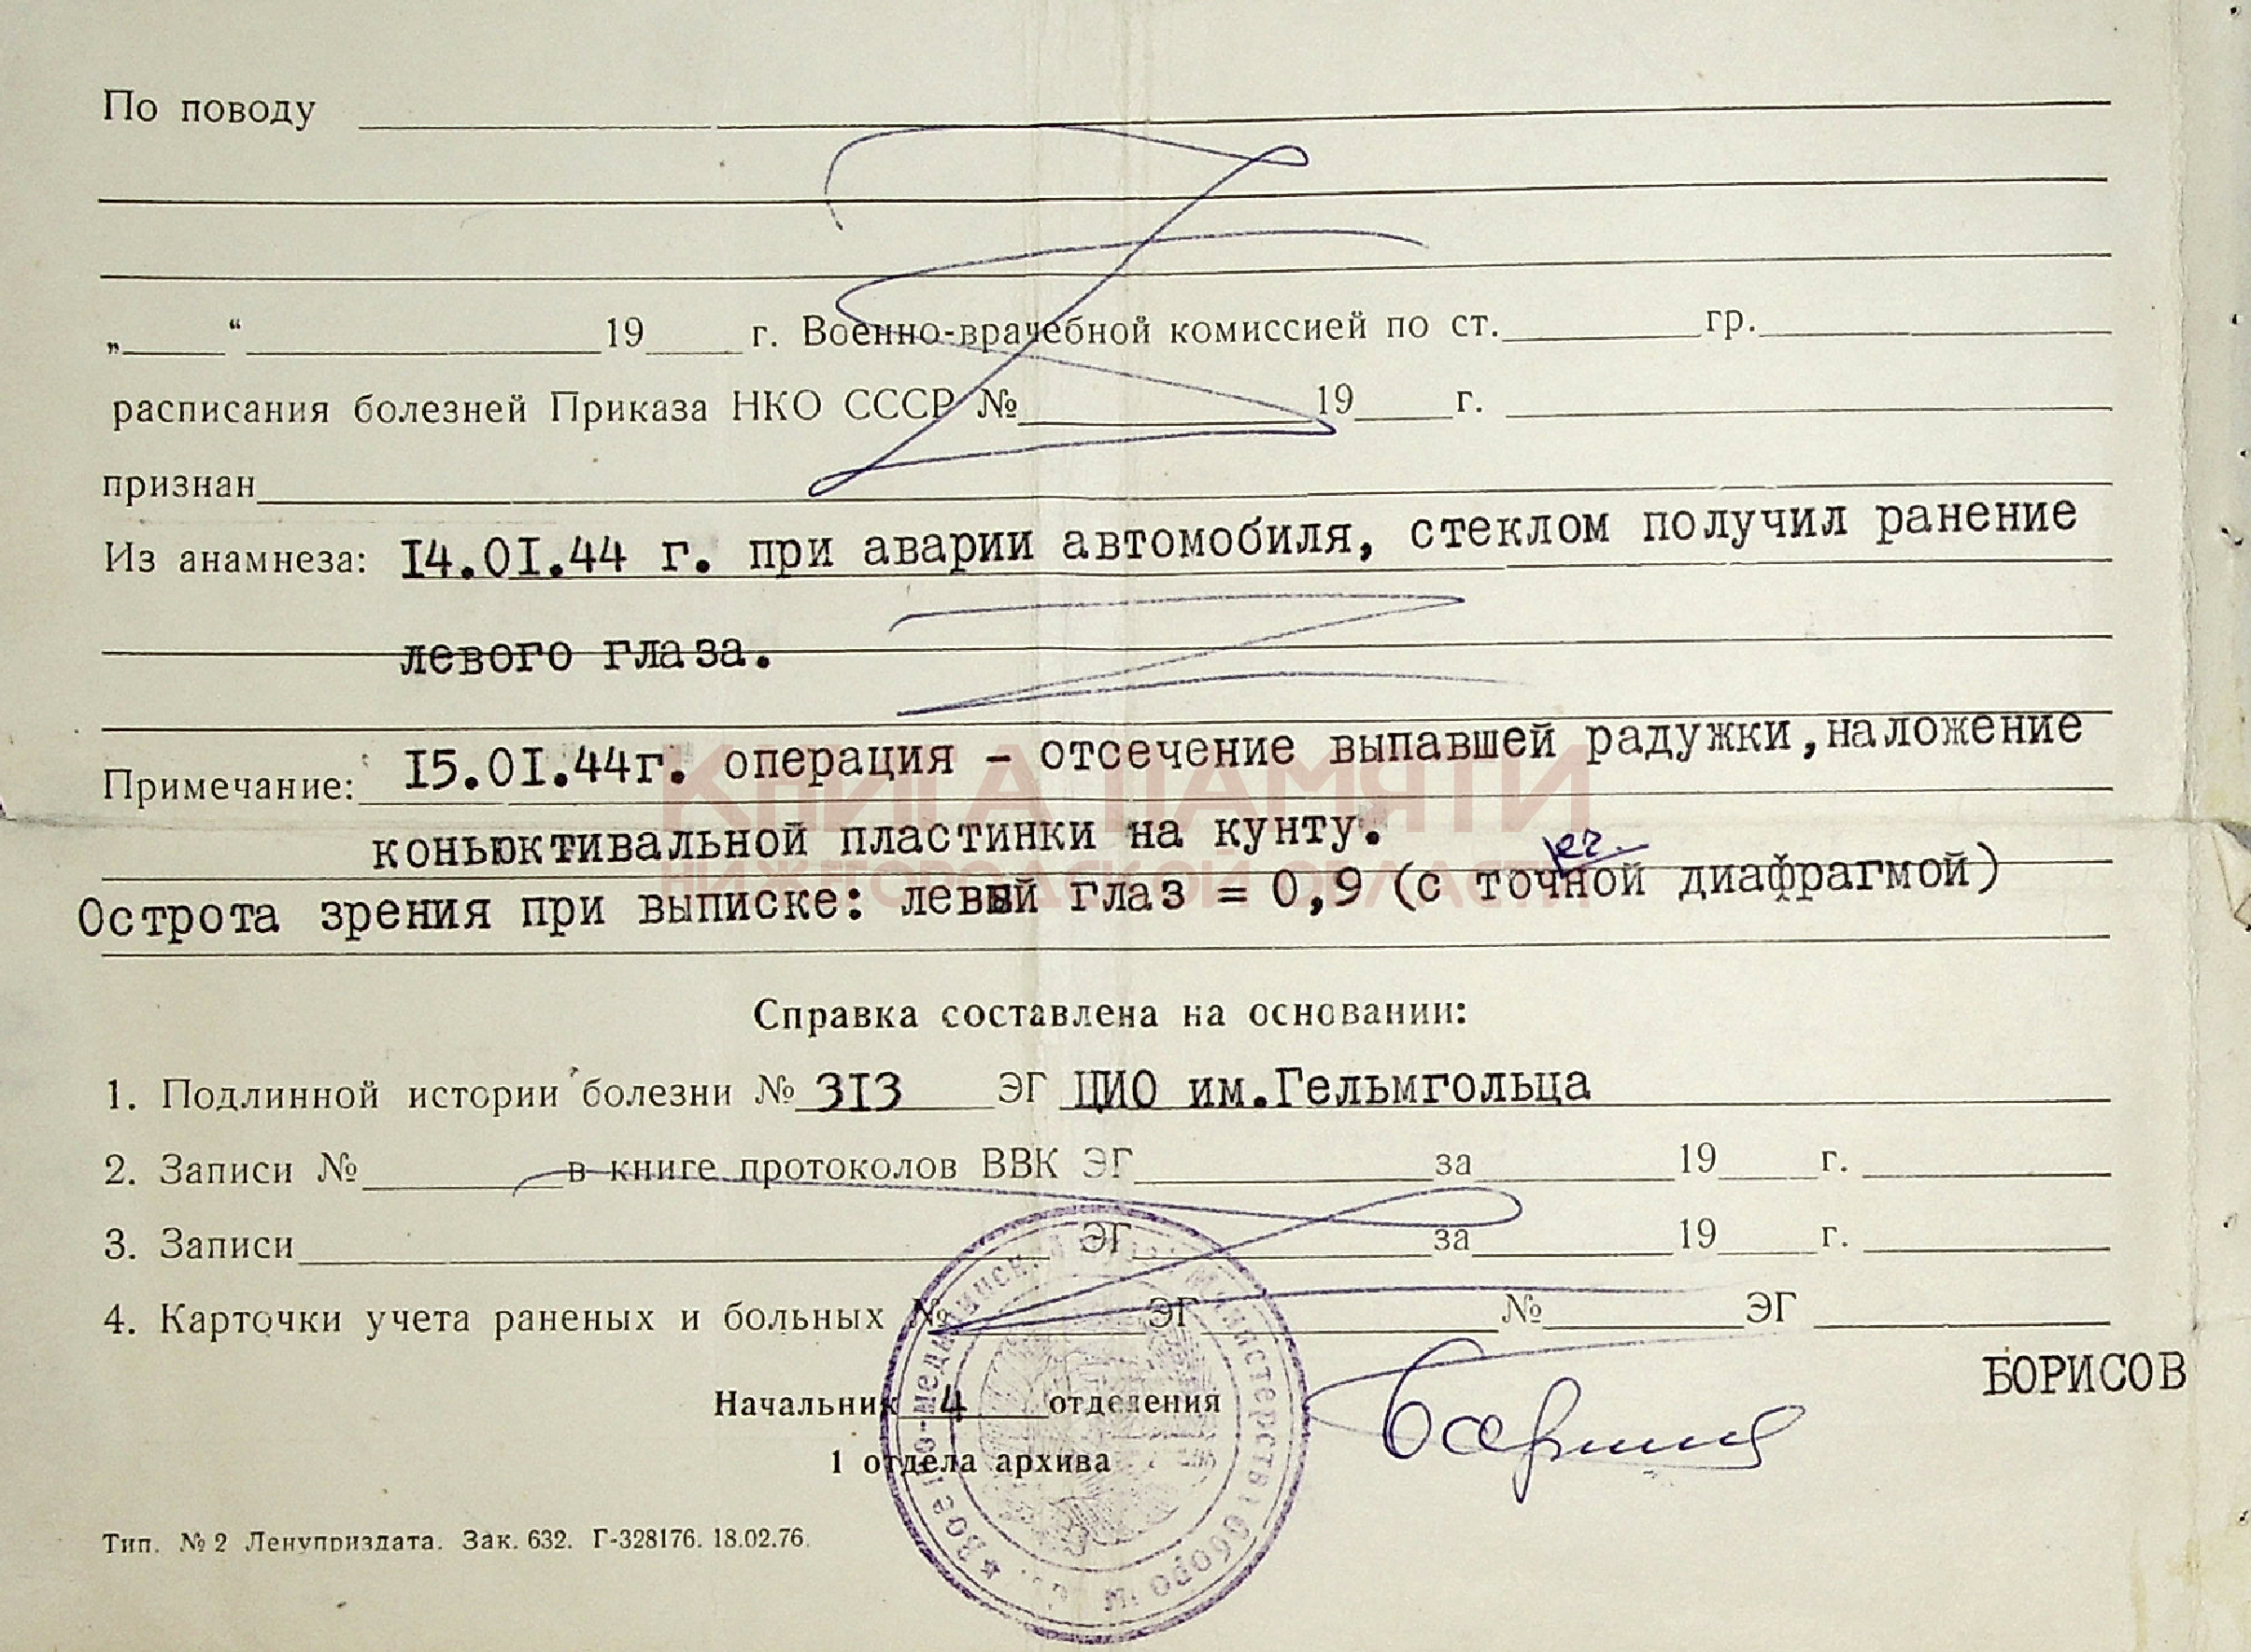 По поводу
„ “ 19 г. Военно-врачебной комиссией по ст. гр.
расписания болезней Приказа НКО СССР № 19 г.
признан
Из анамнеза: I4.0I.44 г. при аварии автомобиля, стеклом получил ранение
левого глаза.
Примечание: I5.0I.44г. операция - отсечение выпавшей радужки,наложение
коньюктивальной пластинки на кунту.
КНИГА ПАМЯТИ
НИЖЕГОРОДСКОЙ ОБЛАСТИ
Острота зрения при выписке: левый глаз = 0,9 (с точной диафрагмой)
Справка составлена на основании:
1. Подлинной истории болезни № 3I3 ЭГ ЦИО им.Гельмгольца
2. Записи № в книге протоколов ВВК ЭГ за 19 г.
3. Записи ЭГ за 19 г.
4. Карточки учета раненых и больных № ЭГ № ЭГ
БОРИСОВ
Начальник 4 отделения
1 отдела архива
Тип. № 2 Ленуприздата. Зак. 632. Г-328176. 18.02.76.